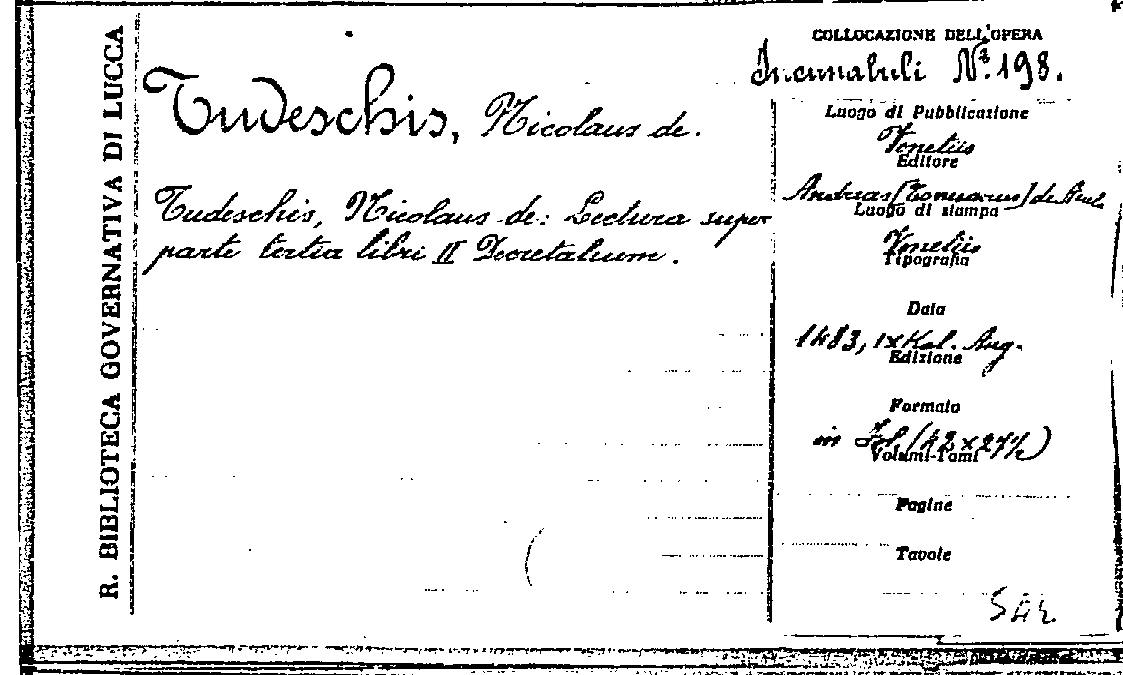 R. BIBLIOTECA GOVERNATIVA DI LUCCA
Tudeschis, Nicolaus de.
Tudeschis, Nicolaus de: Lectura super
parte tertia libri II Decretalium.
COLLOCAZIONE DELL'OPERA
Incunabuli N.º 198.
Luogo di Pubblicazione
Venetiis
Editore
Andreas [] de
Luogo di stampa
Venetiis
Tipografia
Data
1483, IX Kal. Aug.
Edizione
Formato
in Fol. (42 x 27½)
Volumi-Tomi
Pagine
Tavole